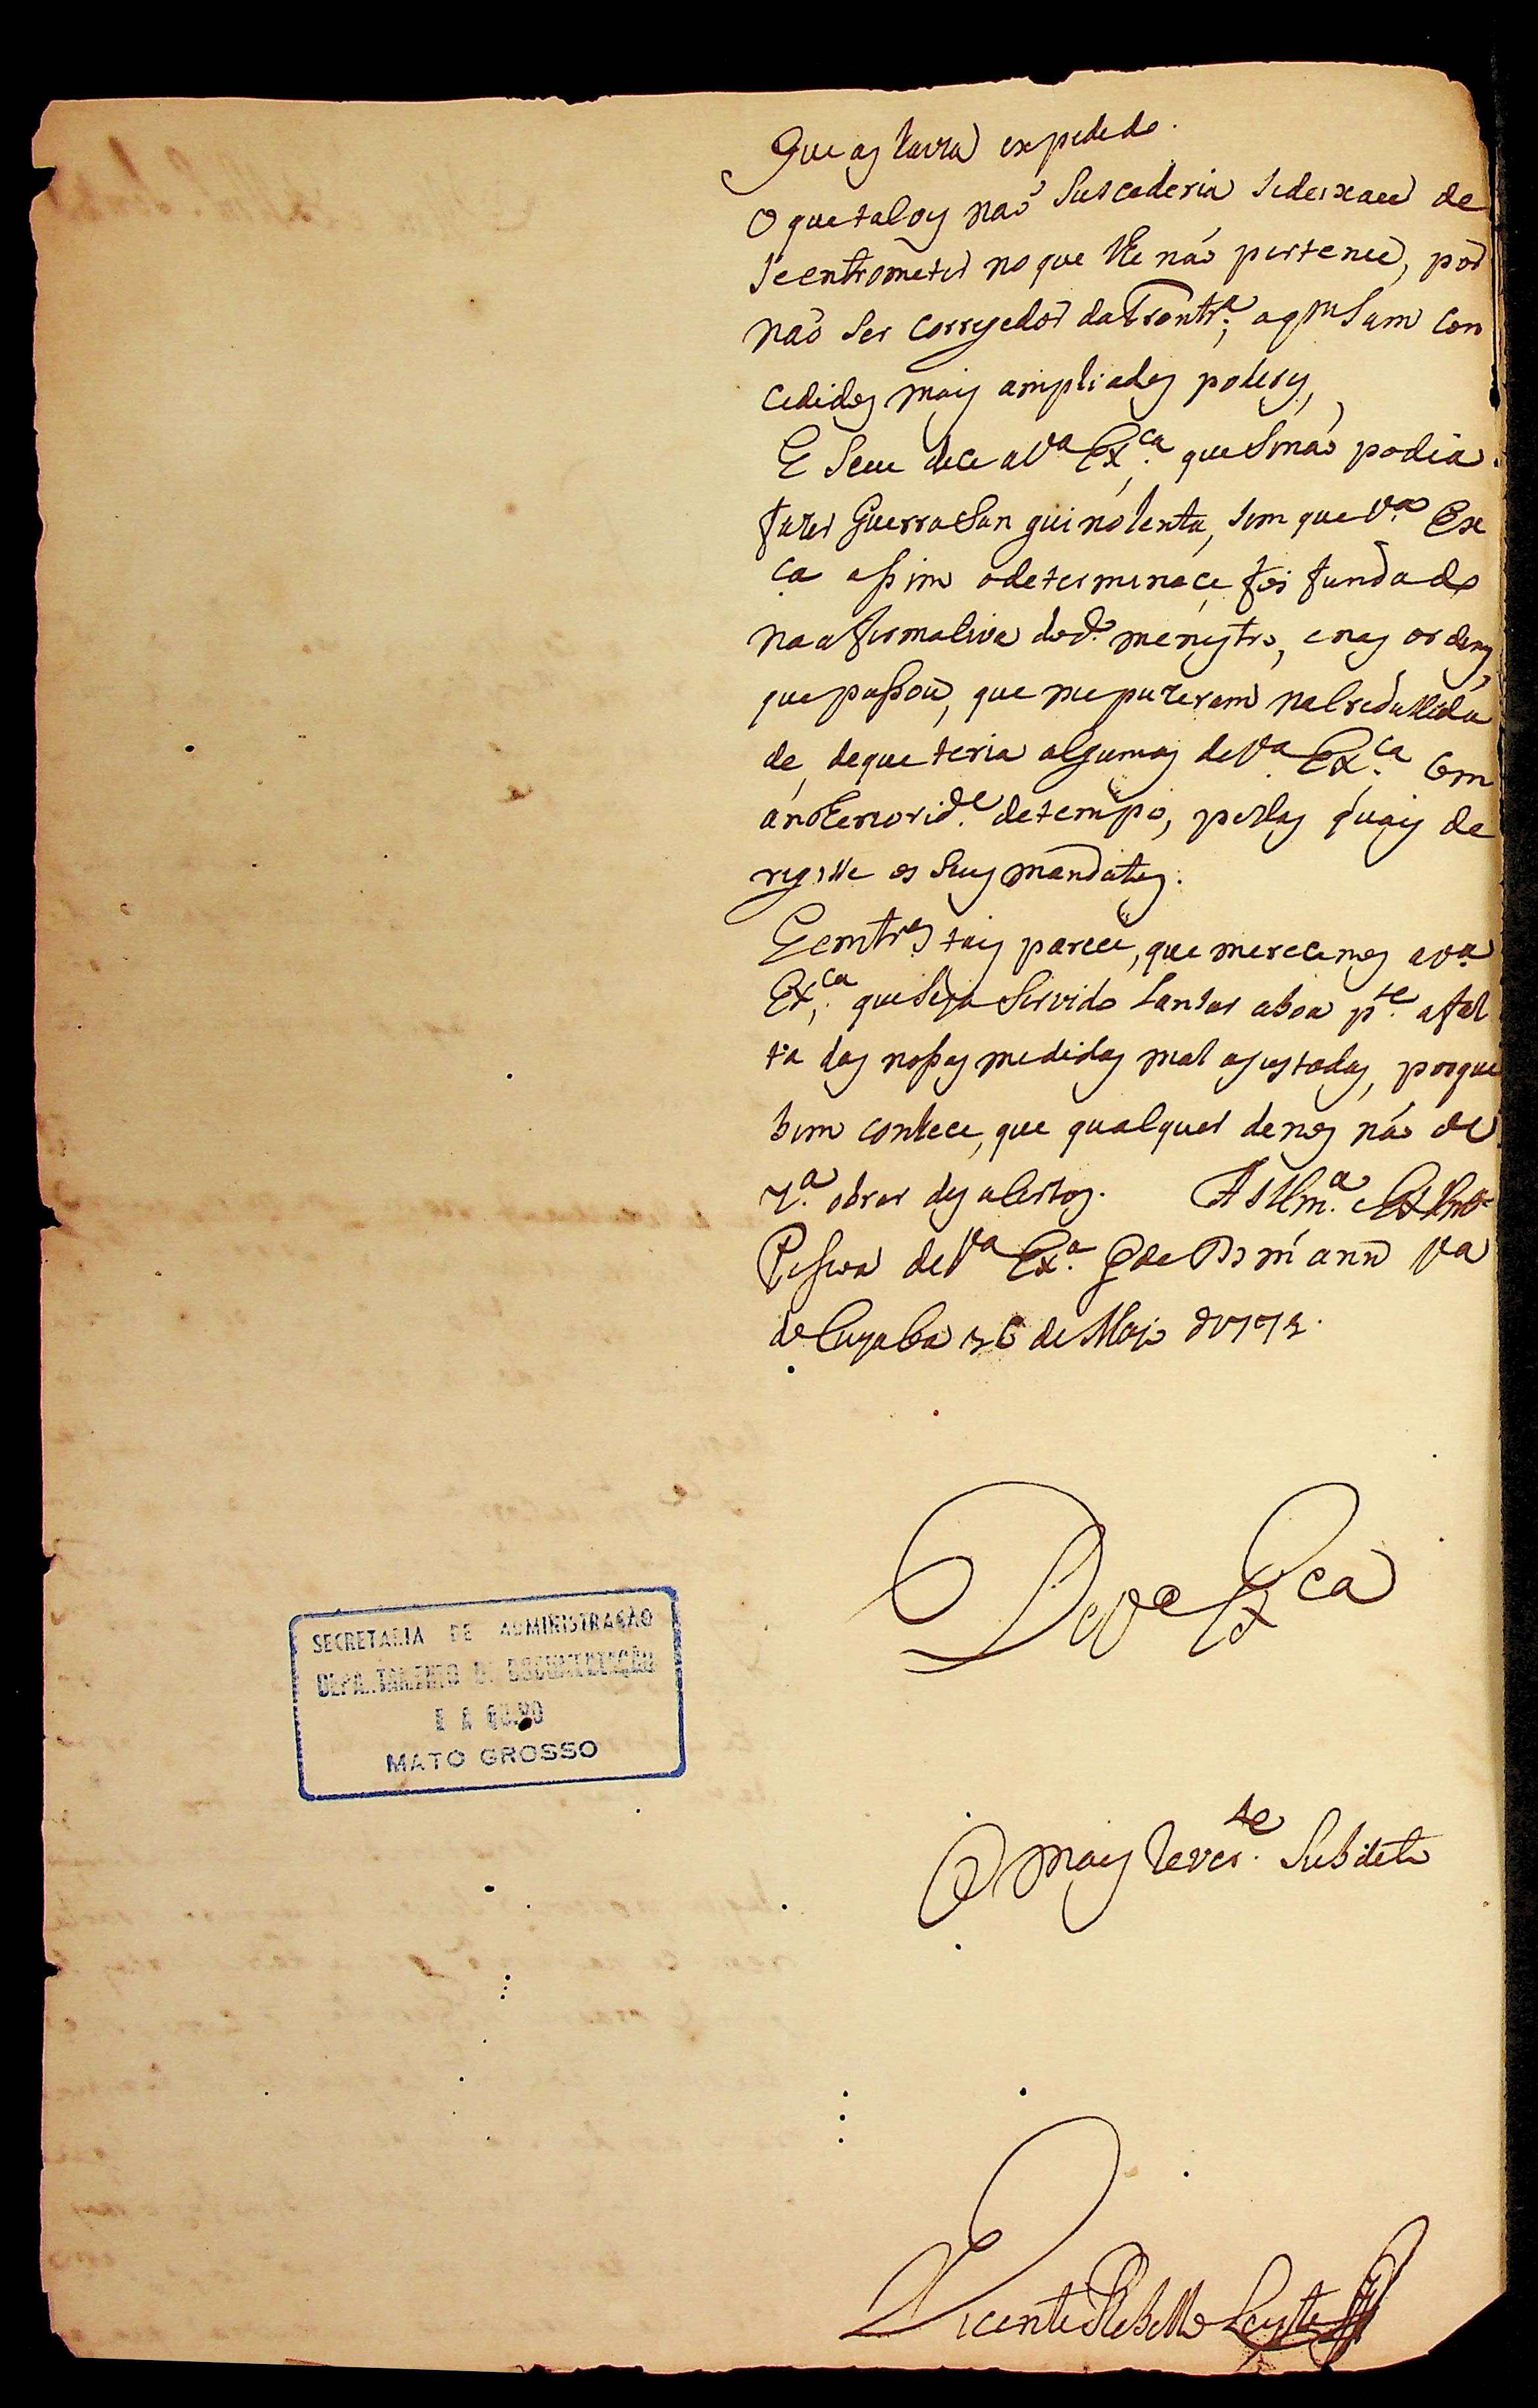 que as havia expedido.
O que talves naõ Susederia sedeixace de
Seentrometer no que lhe naõ pertence, por
naõ ser corregedor da Frontr.ª, aqm Sam con
cedidos mais ampliados poderes,
E Seeu dice aVª Ex.ca que Sináo podia
fazer Guerra San guinolenta, sem que V.ª Ex
ca assim odeterminace, foi fundado
na afirmativa dod.º menystro, e nas ordens,
que passou, que mepuzeram na Credulida
de, de que teria algumas deVª Ex.ca Com
anteriorid.e detempo, pellas quais de
regisse os Seus mandatos.
Eemtr.os tais parece, que merecemos aV.ª
Ex.ca que Seja Servido Lansar aboa p.te afal
ta das nossas medidas mal ajustadas, porque
bem conhece, que qualquer denos não de
z.ª obrar des acertos. A Illm.ª e Ex.ma
Pessoa deVª Ex.ª Gde Ds m. ann Vª
de Cuyaba 26 de Mayo 1772.
DeVª Exca
O mais Rever.te Subdito
Vicente Rebello Leyte
SECRETARIA DE ADMINISTRAÇÃO
DEPARTAMENTO DE DOCUMENTAÇÃO
E ARQUIVO
MATO GROSSO